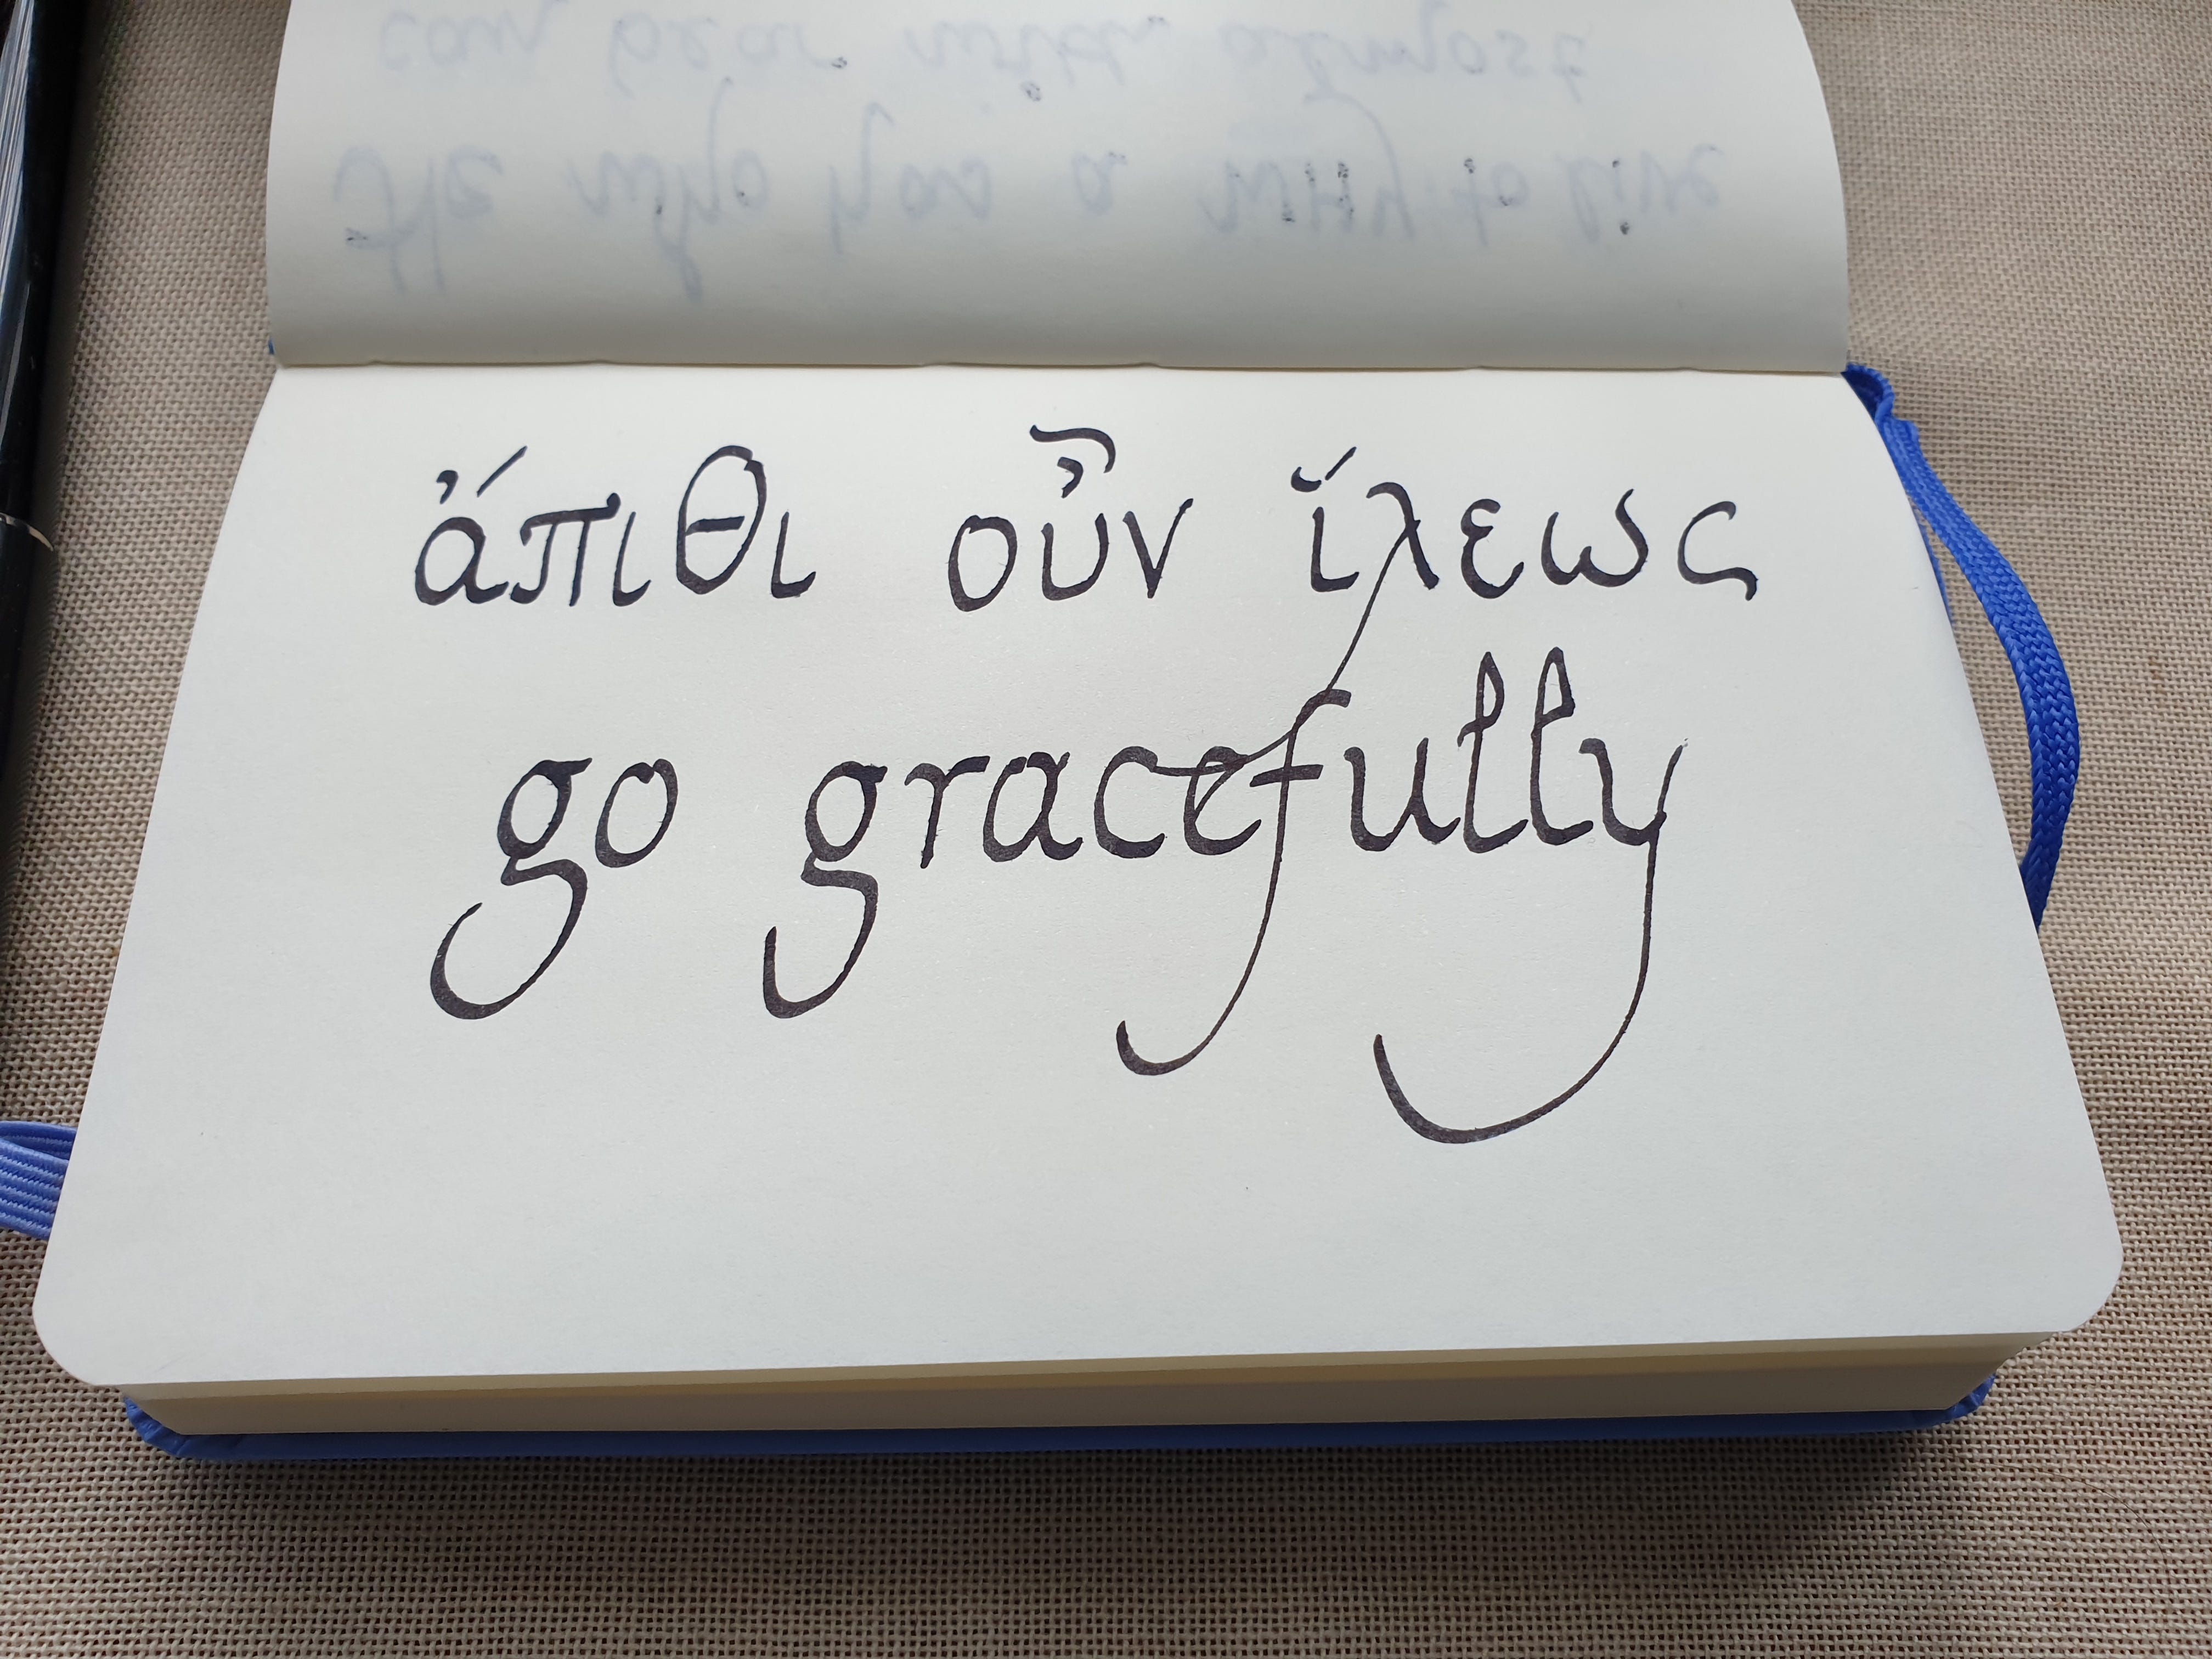 ἄπιθι οὖν ἵλεως
go gracefully